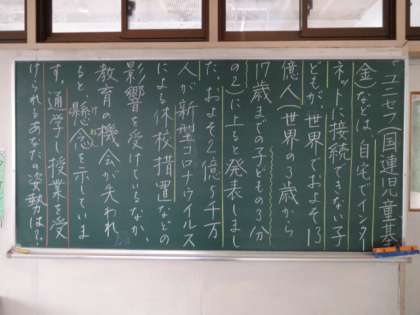 「ユニセフ(国連児童基
金)などは、自宅でインター
ネットに接続できない子
どもが、世界でおよそ13
億人(世界の3歳から
17歳までの子どもの3分
の2)に上ると発表しまし
た。およそ2億5千万
人が新型コロナウイルス
による休校措置などの
影響を受けているなか、
教育の機会が失われ
ると、懸念を示していま
す。通学し授業を受
けられるあなたの姿勢は?